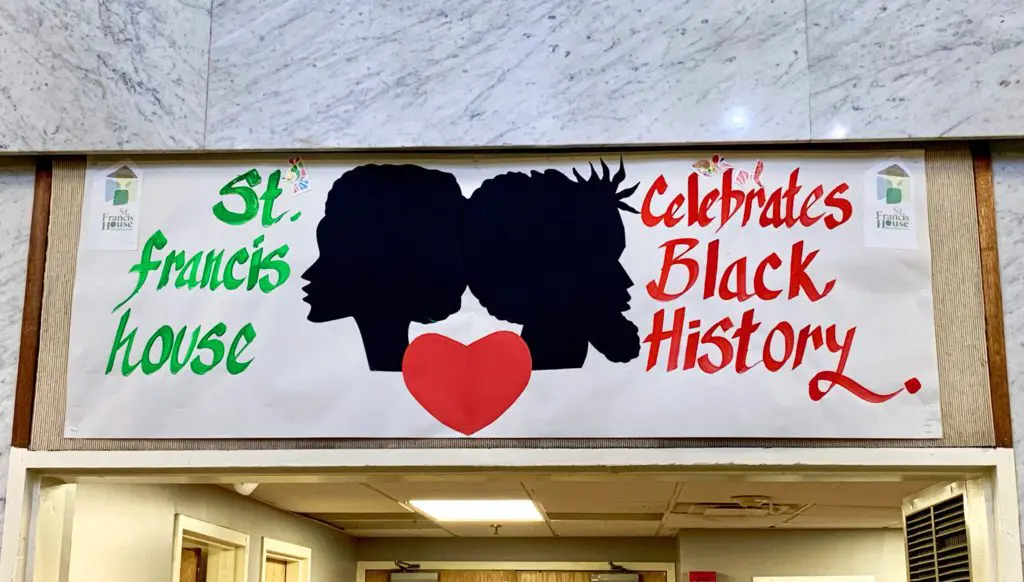 St.
francis
house
Celebrates
Black
History.
St.
Francis
House
St.
Francis
House